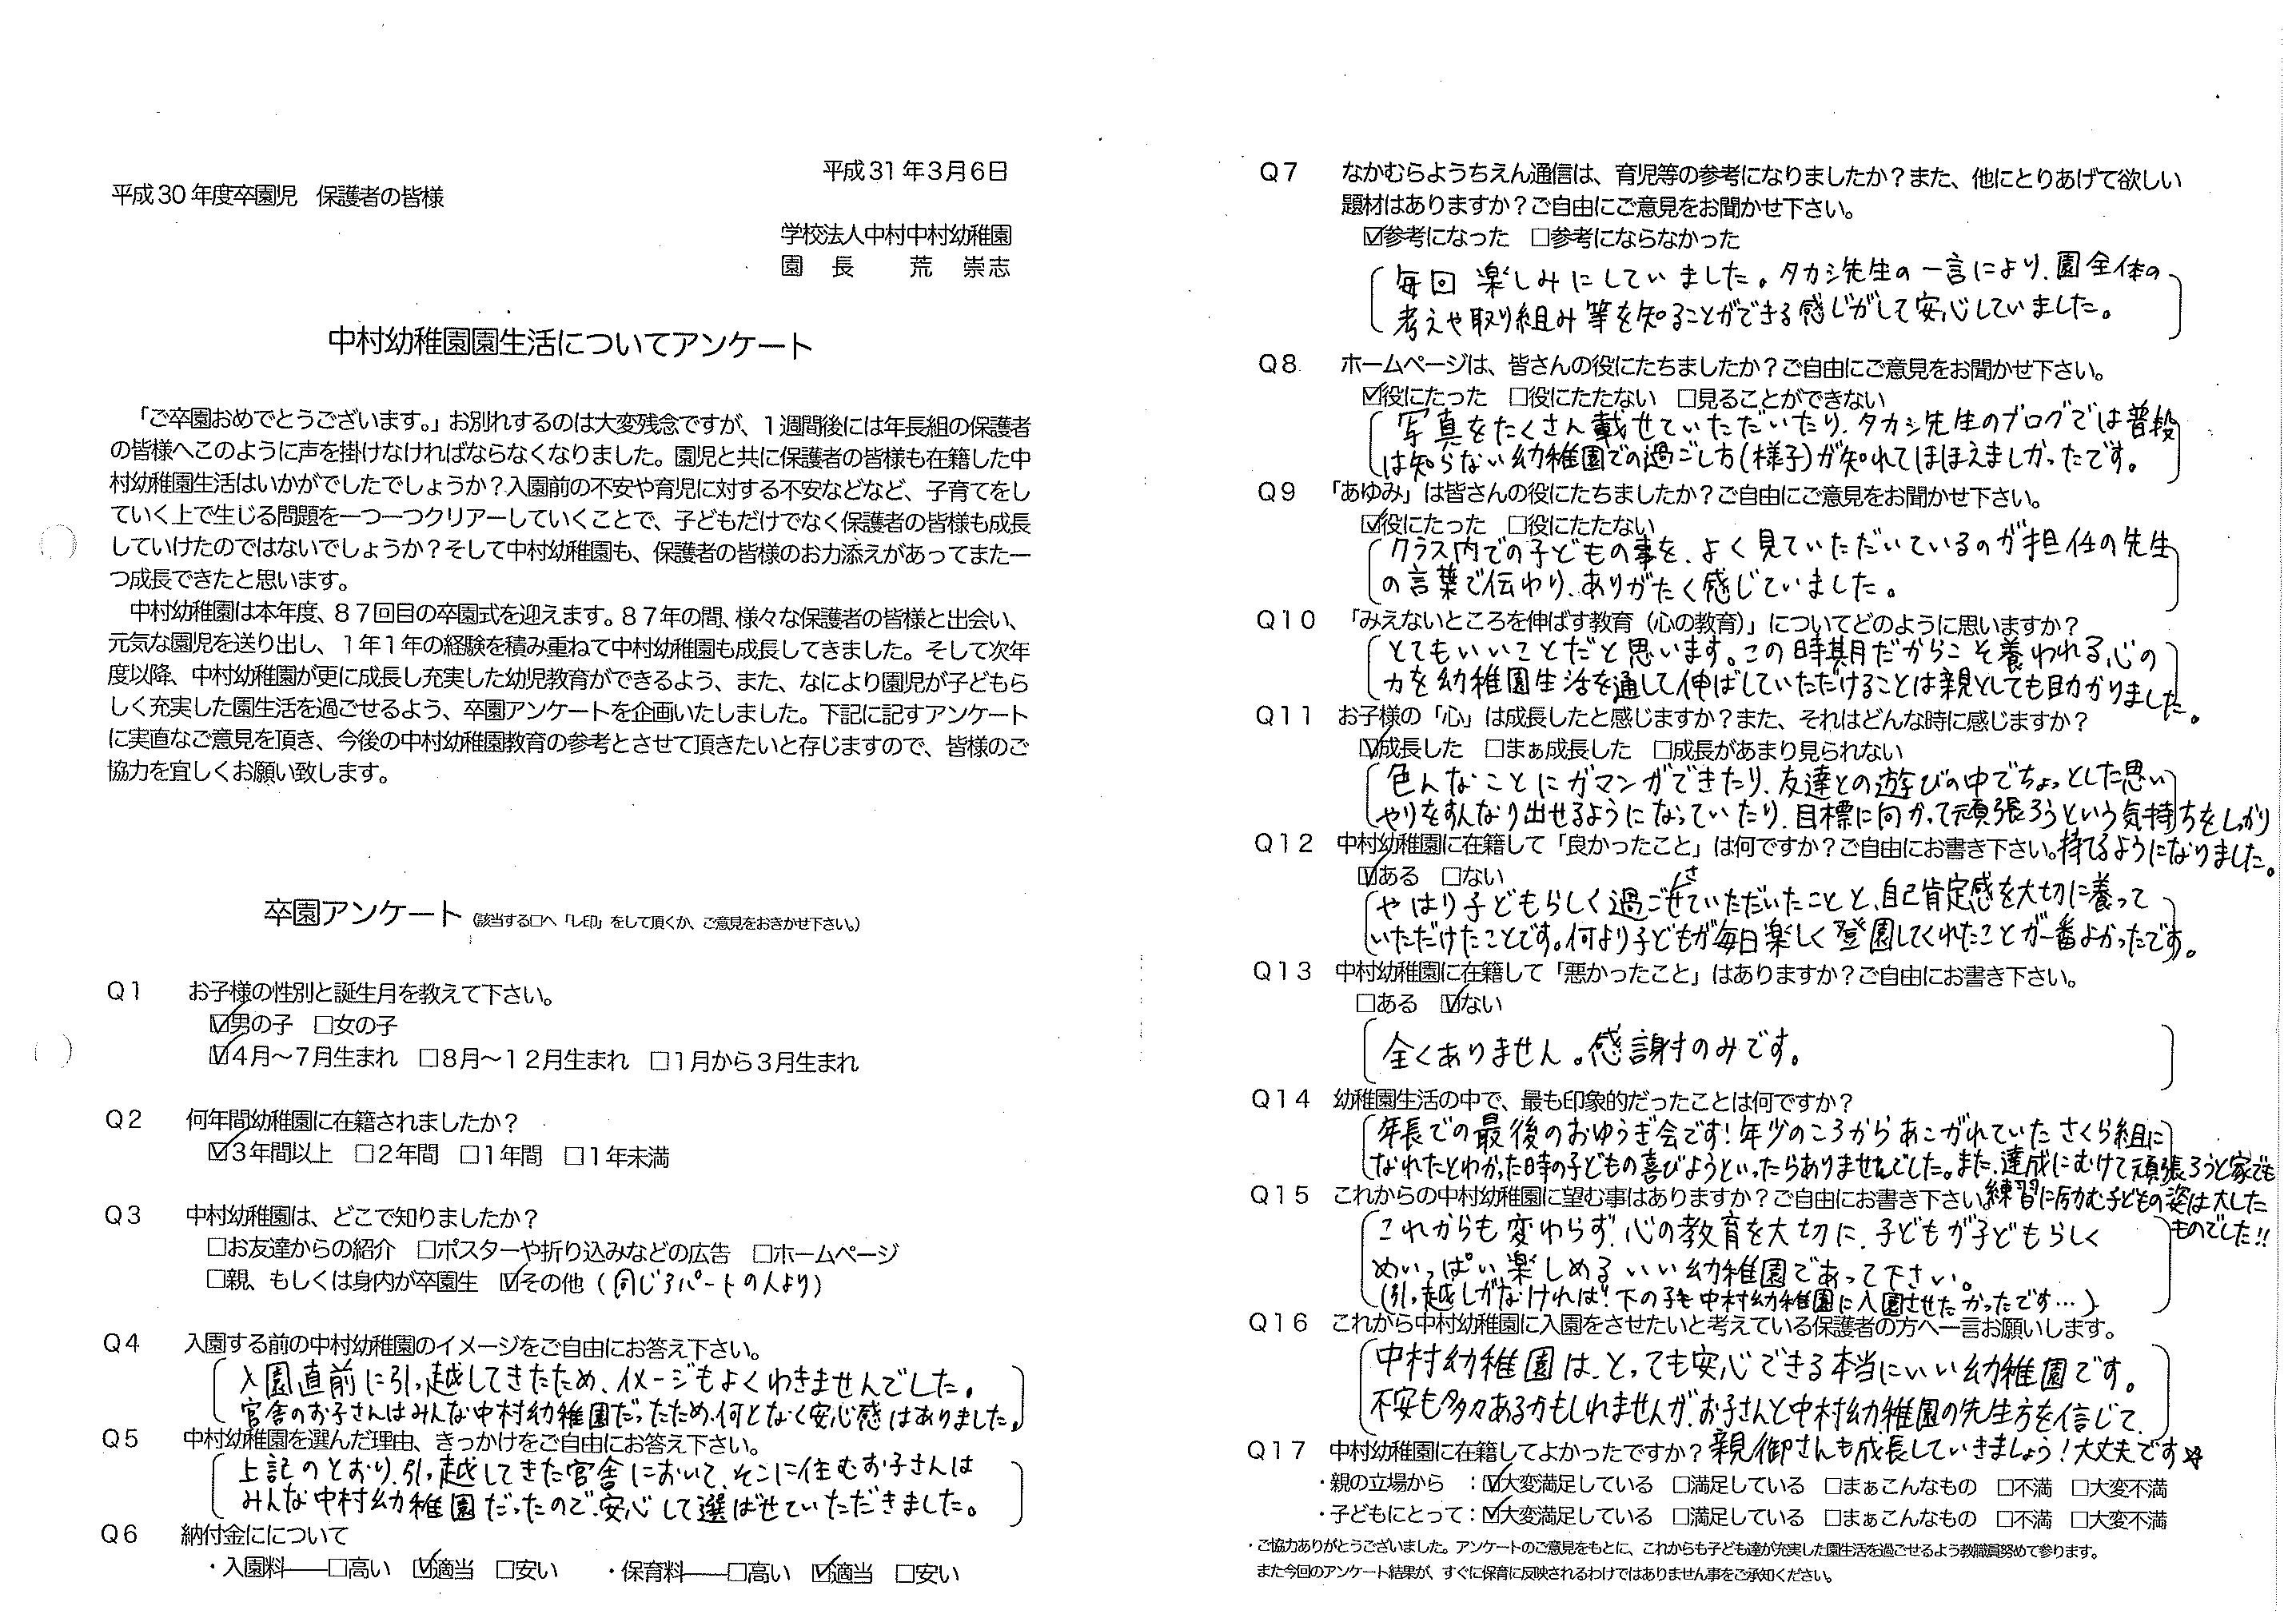 平成31年3月6日
平成30年度卒園児　保護者の皆様
学校法人中村中村幼稚園
園　長　　荒　崇志
中村幼稚園園生活についてアンケート
「ご卒園おめでとうございます。」お別れするのは大変残念ですが、１週間後には年長組の保護者
の皆様へこのように声を掛けなければならなくなりました。園児と共に保護者の皆様も在籍した中
村幼稚園生活はいかがでしたでしょうか？入園前の不安や育児に対する不安などなど、子育てをし
ていく上で生じる問題を一つ一つクリアーしていくことで、子どもだけでなく保護者の皆様も成長
していけたのではないでしょうか？そして中村幼稚園も、保護者の皆様のお力添えがあってまた一
つ成長できたと思います。
中村幼稚園は本年度、８７回目の卒園式を迎えます。８７年の間、様々な保護者の皆様と出会い、
元気な園児を送り出し、１年１年の経験を積み重ねて中村幼稚園も成長してきました。そして次年
度以降、中村幼稚園が更に成長し充実した幼児教育ができるよう、また、なにより園児が子どもら
しく充実した園生活を過ごせるよう、卒園アンケートを企画いたしました。下記に記すアンケート
に実直なご意見を頂き、今後の中村幼稚園教育の参考とさせて頂きたいと存じますので、皆様のご
協力を宜しくお願い致します。
卒園アンケート（該当する□へ「レ印」をして頂くか、ご意見をおきかせ下さい。）
Q1　お子様の性別と誕生月を教えて下さい。
☑男の子　□女の子
☑4月～7月生まれ　□8月～12月生まれ　□1月から3月生まれ
Q2　何年間幼稚園に在籍されましたか？
☑3年間以上　□2年間　□1年間　□1年未満
Q3　中村幼稚園は、どこで知りましたか？
□お友達からの紹介　□ポスターや折り込みなどの広告　□ホームページ
□親、もしくは身内が卒園生　☑その他（同じアパートの人より）
Q4　入園する前の中村幼稚園のイメージをご自由にお答え下さい。
入園直前に引っ越してきたため、イメージもよくわきませんでした。
官舎のお子さんはみんな中村幼稚園だったため、何となく安心感はありました。
Q5　中村幼稚園を選んだ理由、きっかけをご自由にお答え下さい。
上記のとおり、引っ越してきた官舎において、そこに住むお子さんは
みんな中村幼稚園だったので、安心して選ばせていただきました。
Q6　納付金にについて
・入園料――□高い　☑適当　□安い　・保育料――□高い　☑適当　□安い
Q7　なかむらようちえん通信は、育児等の参考になりましたか？また、他にとりあげて欲しい
題材はありますか？ご自由にご意見をお聞かせ下さい。
☑参考になった　□参考にならなかった
毎回 楽しみにしていました。タカシ先生の一言により、園全体の
考えや取り組み等を知ることができる感じがして安心していました。
Q8　ホームページは、皆さんの役にたちましたか？ご自由にご意見をお聞かせ下さい。
☑役にたった　□役にたたない　□見ることができない
写真をたくさん載せていただいたり、タカシ先生のブログでは普段
は知らない幼稚園での過ごし方(様子)が知れてほほえましかったです。
Q9　「あゆみ」は皆さんの役にたちましたか？ご自由にご意見をお聞かせ下さい。
☑役にたった　□役にたたない
クラス内での子どもの事を、よく見ていただいているのが担任の先生
の言葉で伝わり、ありがたく感じていました。
Q10　「みえないところを伸ばす教育（心の教育）」についてどのように思いますか？
とてもいいことだと思います。この時期だからこそ養われる、心の
力を幼稚園生活を通して伸ばしていただけることは親としても助かりました。
Q11　お子様の「心」は成長したと感じますか？また、それはどんな時に感じますか？
☑成長した　□まぁ成長した　□成長があまり見られない
色んなことにガマンができたり、友達との遊びの中でちょっとした思い
やりをすんなり出せるようになっていたり、目標に向かって頑張ろうという気持ちをしっかり
持てるようになりました。
Q12　中村幼稚園に在籍して「良かったこと」は何ですか？ご自由にお書き下さい。
☑ある　□ない
やはり子どもらしく過ごさせていただいたことと、自己肯定感を大切に養って
いただけたことです。何より子どもが毎日楽しく登園してくれたことが一番よかったです。
Q13　中村幼稚園に在籍して「悪かったこと」はありますか？ご自由にお書き下さい。
□ある　☑ない
全くありません。感謝のみです。
Q14　幼稚園生活の中で、最も印象的だったことは何ですか？
年長での最後のおゆうぎ会です！年少のころからあこがれていたさくら組に
なれたとわかった時の子どもの喜びようといったらありませんでした。また、達成にむけて頑張ろうと家でも
練習に励む子どもの姿は大した
ものでした!!
Q15　これからの中村幼稚園に望む事はありますか？ご自由にお書き下さい。
これからも変わらず、心の教育を大切に、子どもが子どもらしく
めいっぱい楽しめる いい幼稚園であって下さい。
(引っ越しがなければ、下の子も中村幼稚園に入園させたかったです…)
Q16　これから中村幼稚園に入園をさせたいと考えている保護者の方へ一言お願いします。
中村幼稚園は、とっても安心できる本当にいい幼稚園です。
不安も多々あるかもしれませんが、お子さんと中村幼稚園の先生方を信じて、
親御さんも成長していきましょう！大丈夫です☆
Q17　中村幼稚園に在籍してよかったですか？
・親の立場から　：☑大変満足している　□満足している　□まぁこんなもの　□不満　□大変不満
・子どもにとって：☑大変満足している　□満足している　□まぁこんなもの　□不満　□大変不満
・ご協力ありがとうございました。アンケートのご意見をもとに、これからも子ども達が充実した園生活を過ごせるよう教職員努めて参ります。
また今回のアンケート結果が、すぐに保育に反映されるわけではありません事をご承知ください。